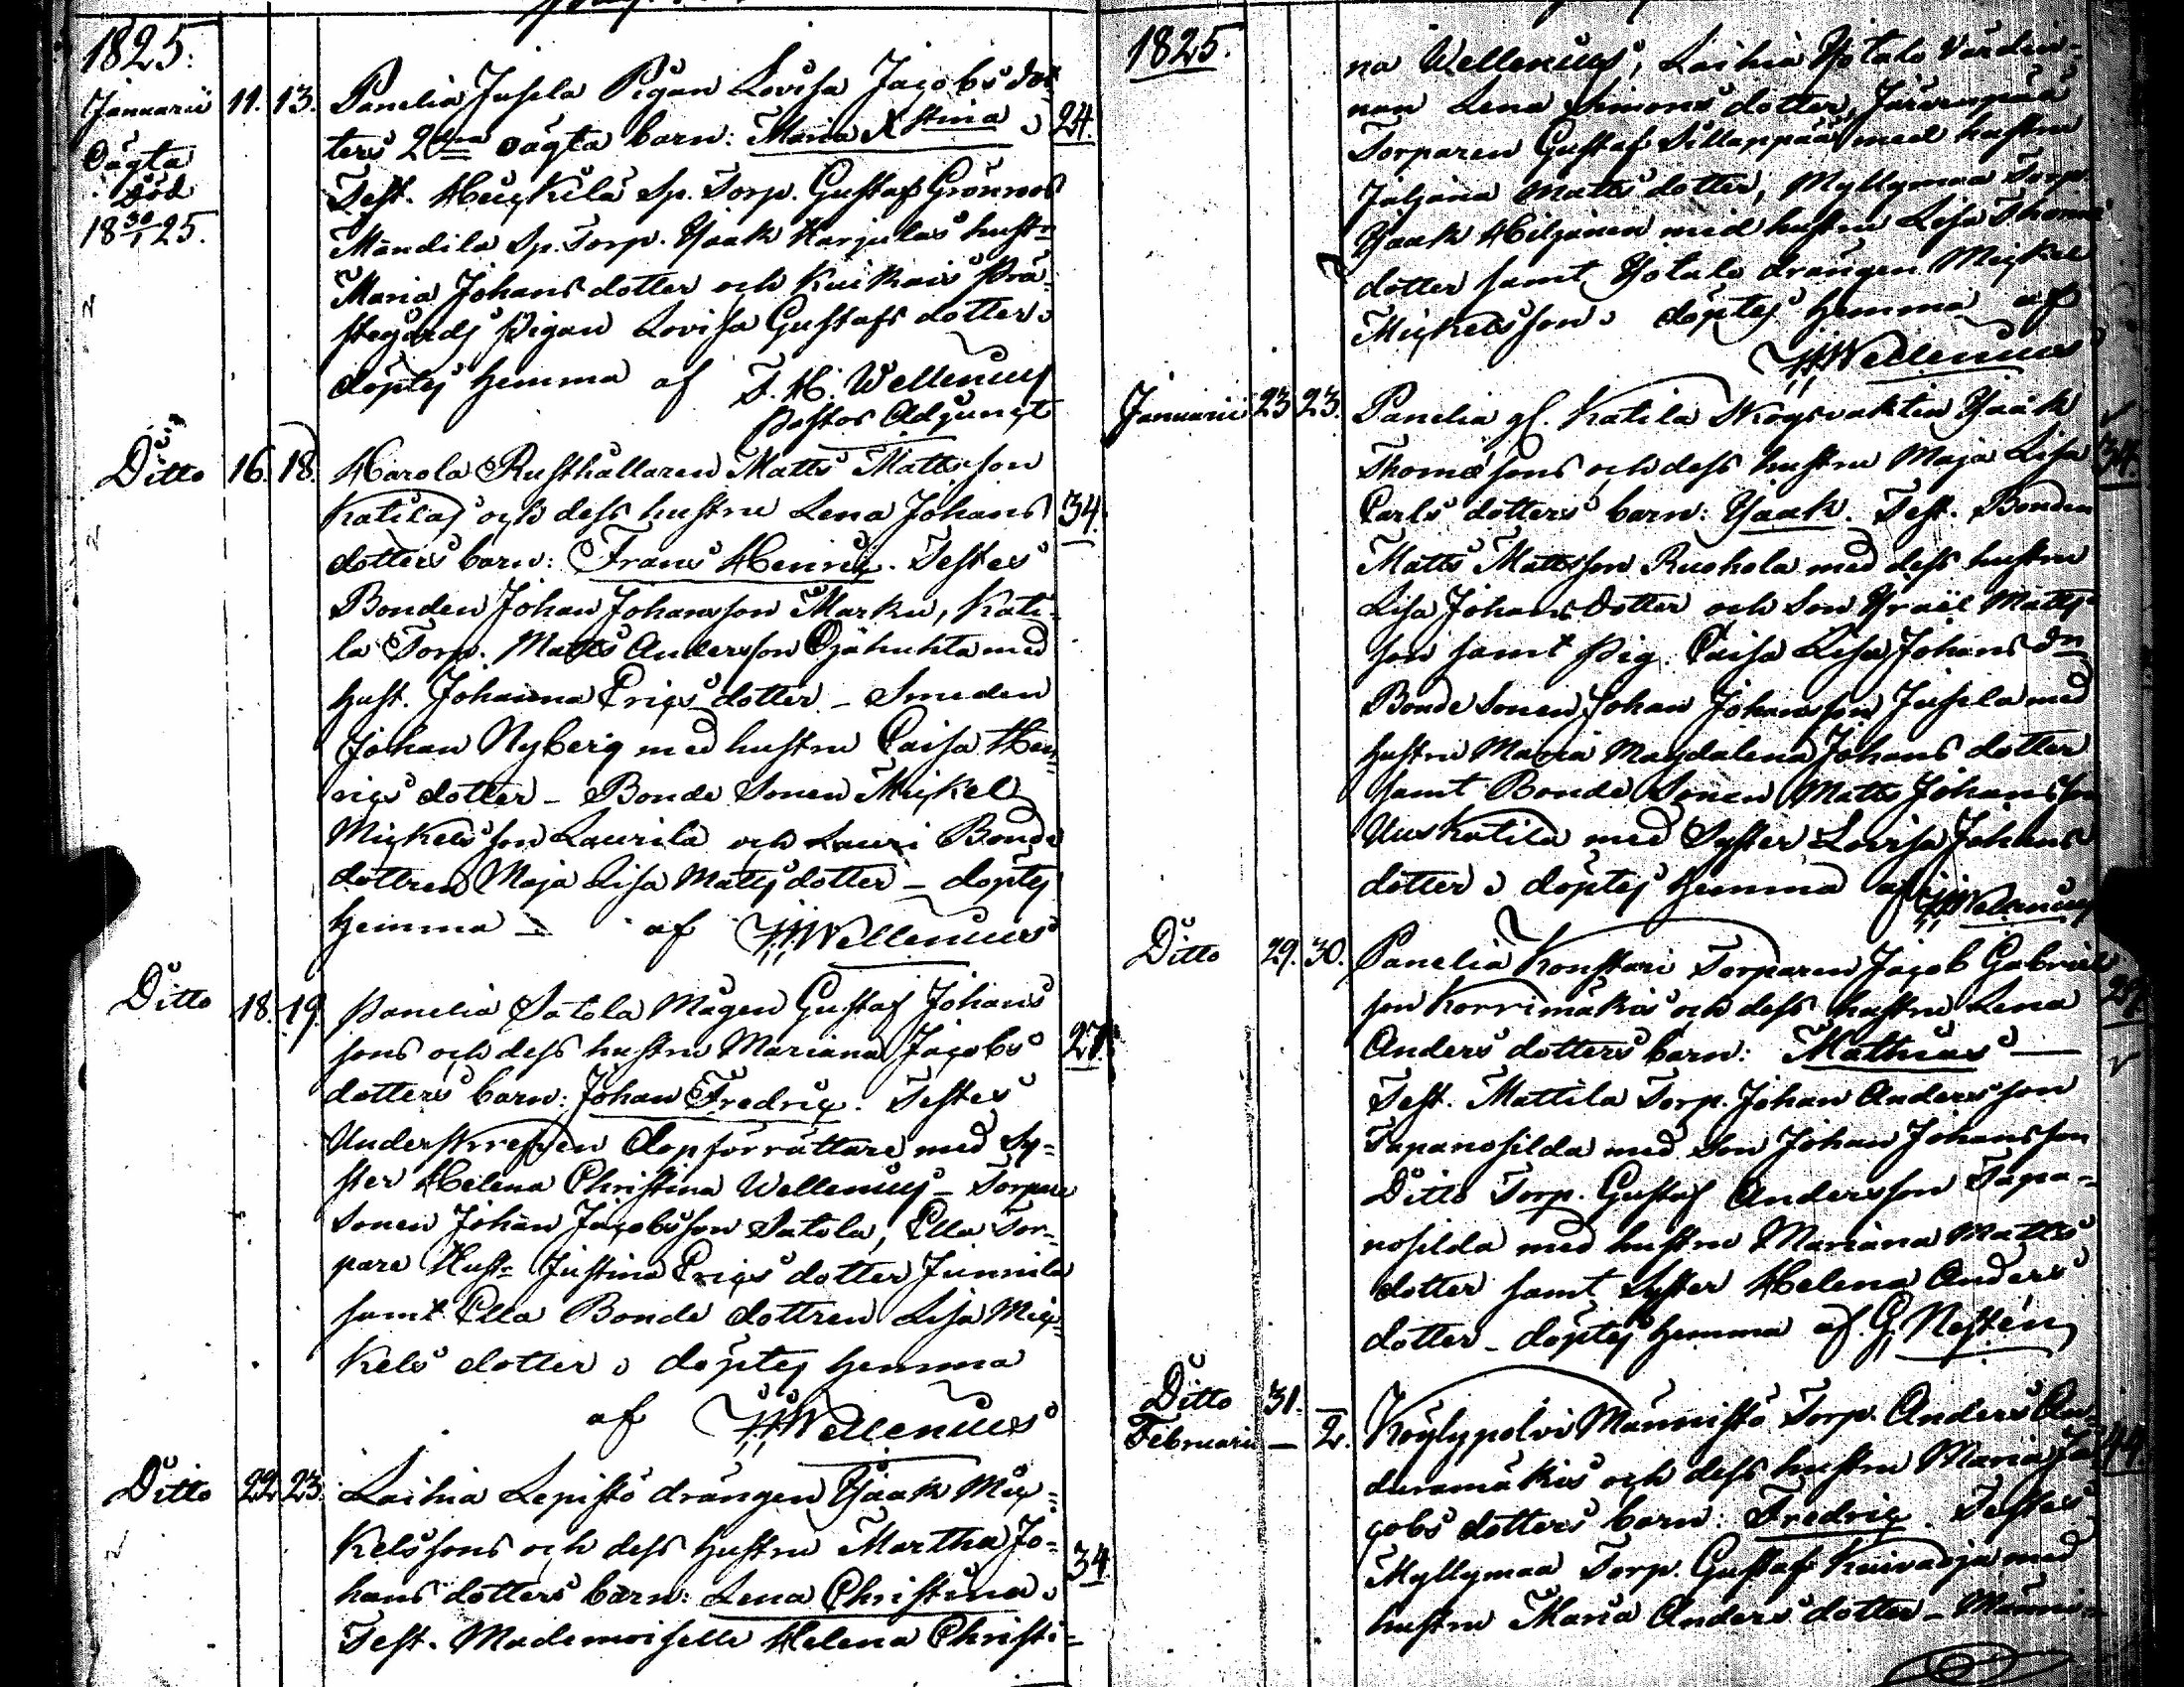 1825.
Januarii 11. 13. Panelia Jusela Pigan Lovisa Jacobs dot
Oägta
död
18 30/1 25.
ters 2dra oägta barn: Maria Xstina, 24.
Test. Heickilä Sp. Torp. Gustaf Grönroos
Mändilä Sp. Torp. Isaak Harjulas hustr
Maria Johans dotter och Kiukais Prä-
stegårds Pigan Lovisa Gustafs dotter.
döptes hemma af J. H. Wellenius
Pastors Adjunct
Ditto 16. 18. Harola Rusthållaren Matts Matts son
Katilas och dess hustru Lena Johans 34.
dotters barn: Frans Henric. Testes
Bonden Johan Johansson Marku, Kati-
la Torp. Matts Andersson Ojahuhta med
hust. Johanna Erics dotter - Smeden
Johan Nyberg med hustru Caisa Hen-
rics dotter - Bonde Sonen Mickel
Mickelsson Laurila och Lauri Bonde
dottren Maja Lisa Matts dotter - döptes
hemma - af JHWellenius
Ditto 18. 19. Panelia Satola Mågen Gustaf Johans
sons och dess hustru Mariana Jacobs 27.
dotters barn: Johan Fredric. Testes
Underskrefven Dopförrättare med Sy-
ster Helena Christina Wellenius - Torpare
Sonen Johan Jacobsson Satola, Ella Tor-
pare Hustr Justina Erics dotter Junnila
samt Ella Bonde dottren Lisa Mic-
kels dotter. döptes hemma
af JHWellenius
Ditto 22. 23. Laihia Lepistö drängen Isaak Mic-
kelssons och dess hustru Martha Jo- 34.
hans dotters barn: Lena Christina.
Test. Mademoiselle Helena Christi-
1825.
na Wellenius, Laihia Yotalo Värdin-
nan Lena Simons dotter, Järvenpää
Torparen Gustaf Sillanpää med hustru
Juljana Matts dotter, Myllymaa Torp.
Isaak Hiljanen med hustru Lisa Thomæ
dotter samt Yotalo drängen Mickel
Mickelsson. döptes hemma af
JHWellenius
Januarii 23 23. Panelia gl. Katila Skogsvakten Isaak
Thomæ sons och dess hustru Maja Lisa 34.
Carls dotters barn: Isaak. Test. Bonden
Matts Mattsson Ruohola med dess hustru
Lisa Johans dotter och Son Israël Matts
son samt Pig. Caisa Lisa Johans dr
Bonde Sonen Johan Johansson Jusela med
hustru Maria Magdalena Johans dotter
samt Bonde Sonen Matts Johansson
Uuskatila med Syster Lovisa Johans
dotter. döptes hemma af JHWellenius
Ditto 29. 30. Panelia Konstari Torparen Jacob Gabriel
son Korrimäkis och dess hustru Lena
Anders dotters barn: Mathias
Test. Mattila Torp. Johan Andersson
Tapanosilda med Son Johan Johansson
Ditto Torp. Gustaf Andersson Tapa-
nosilda med hustru Mariana Matts
dotter samt Syster Helena Anders
dotter - döptes hemma af G. Nestén
Ditto 31.
Februarii - 2. Köylypolvi Männistö Torp. Anders An-
deramäkis och dess hustru Maria Ja- 44.
cobs dotters barn: Fredric. Testes
Myllymaa Torp. Gustaf Kuivaoja med
hustru Maria Anders dotter - Männi-